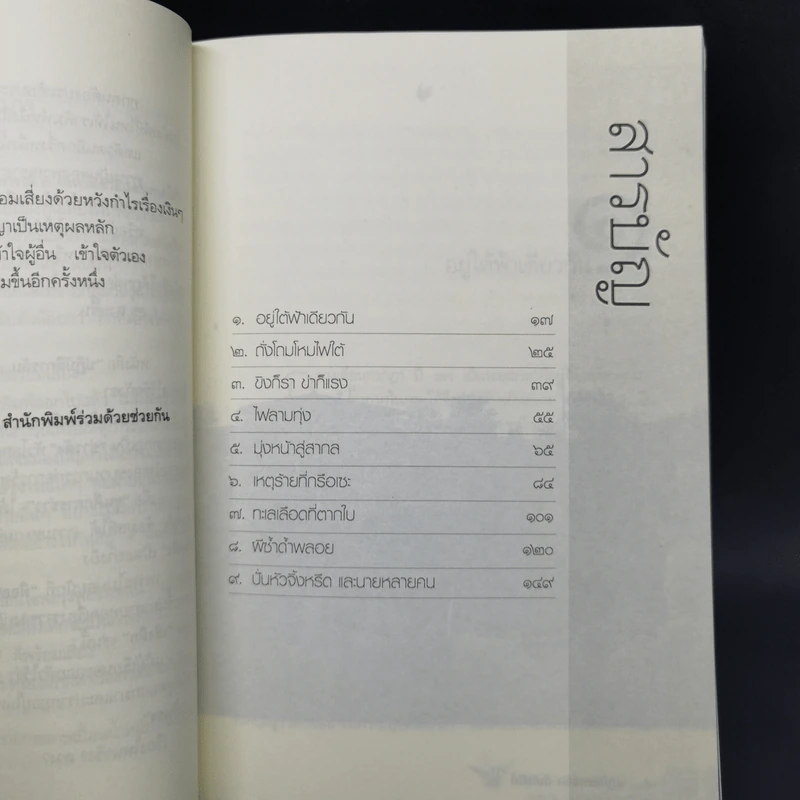 อมเสี่ยงด้วยหวังกำไรเรื่องเงินๆ
ญาเป็นเหตุผลหลัก
ข้าใจผู้อื่น เข้าใจตัวเอง
มขึ้นอีกครั้งหนึ่ง
สำนักพิมพ์ร่วมด้วยช่วยกัน
สารบัญ
๑. อยู่ใต้ฟ้าเดียวกัน ๑๗
๒. ถั่งโถมโหมไฟใต้ ๒๕
๓. ขิงก็รา ข่าก็แรง ๓๙
๔. ไฟลามทุ่ง ๕๕
๕. มุ่งหน้าสู่สากล ๖๕
๖. เหตุร้ายที่กรือเซะ ๘๔
๗. ทะเลเลือดที่ตากใบ ๑๐๑
๘. ผีซ้ำด้ำพลอย ๑๒๐
๙. ปั่นหัวจิ้งหรีด และนายหลายคน ๑๔๙